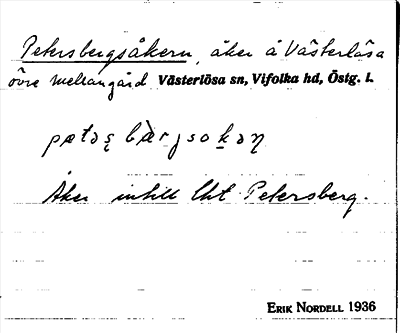 Petersbergsåkern, åker å Västerlösa
övre mellangärd Västerlösa sn, Vifolka hd, Östg. l.
Åker intill lht Petersberg.
ERIK NORDELL 1936